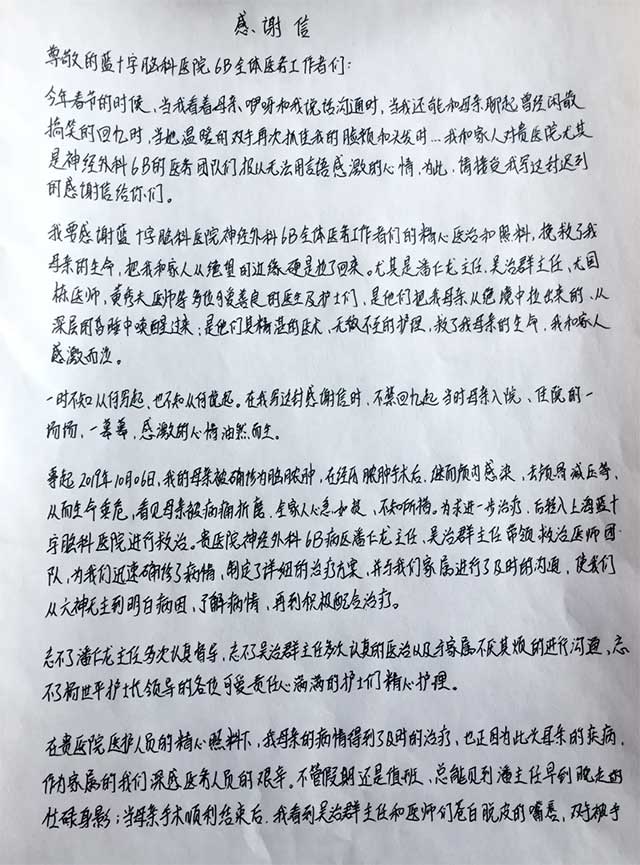 感谢信
尊敬的蓝十字脑科医院6B全体医务工作者们：
今年春节的时候，当我看着母亲咿呀和我说话沟通时，当我还能和母亲聊起曾经闲散
搞笑的回忆时，当她温暖的双手再次抓住我的脸颊和头发时…我和家人对贵医院尤其
是神经外科6B的医务团队们报以无法用言语感激的心情，为此，请接受我写这封迟到
的感谢信给你们。
我要感谢蓝十字脑科医院神经外科6B全体医务工作者们的精心医治和照料，挽救了我
母亲的生命，把我和家人从绝望的边缘硬是拉了回来。尤其是潘仁龙主任、吴治群主任、尤国
栋医师，黄秀夫医师等多位可爱善良的医生及护士们，是他们把我母亲从绝境中拉出来的、从
深层的昏睡中唤醒过来；是他们具精湛的医术，无微不至的护理，救了我母亲的生命，我和家人
感激而泣。
一时不知从何写起，也不知从何说起。在我写这封感谢信时，不禁回忆起当时母亲入院、住院的一
场场，一幕幕，感激的心情油然而生。
事起2019年10月06日，我的母亲被确诊为脑脓肿，在经历脓肿手术后，继而颅内感染，去颅骨减压等，
从而生命垂危，看见母亲被病痛折磨，全家人心急如焚，不知所措。为求进一步治疗，后转入上海蓝十
字脑科医院进行救治。贵医院神经外科6B病区潘仁龙主任、吴治群主任带领救治医师团
队，为我们迅速确诊了病情，制定了详细的治疗方案，并与我们家属进行了及时的沟通，使我们
从六神无主到明白病因，了解病情，再到积极配合治疗。
忘不了潘仁龙主任多次认真督导，忘不了吴治群主任多次认真的医治以及与家属不厌其烦的进行沟通，忘
不了杨世平护士长领导的各位可爱责任心满满的护士们精心护理。
在贵医院医护人员的精心照料下，我母亲的病情得到了及时的治疗，也正因为此次母亲的疾病，
作为家属的我们深感医务人员的艰辛。不管假期还是值班，总能见到潘主任早到晚走的
忙碌身影；当母亲手术顺利结束后，我看到吴治群主任和医师们苍白脱皮的嘴唇，